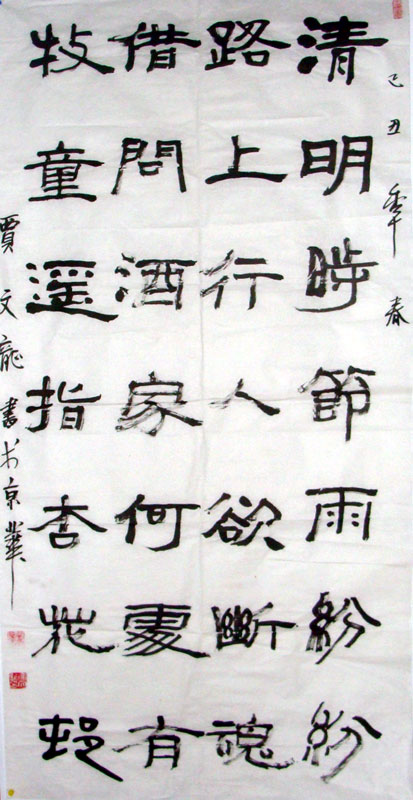 己丑年春
清明時節雨紛紛
路上行人欲斷魂
借問酒家何處有
牧童遥指杏花邨
賈文龍書於京華